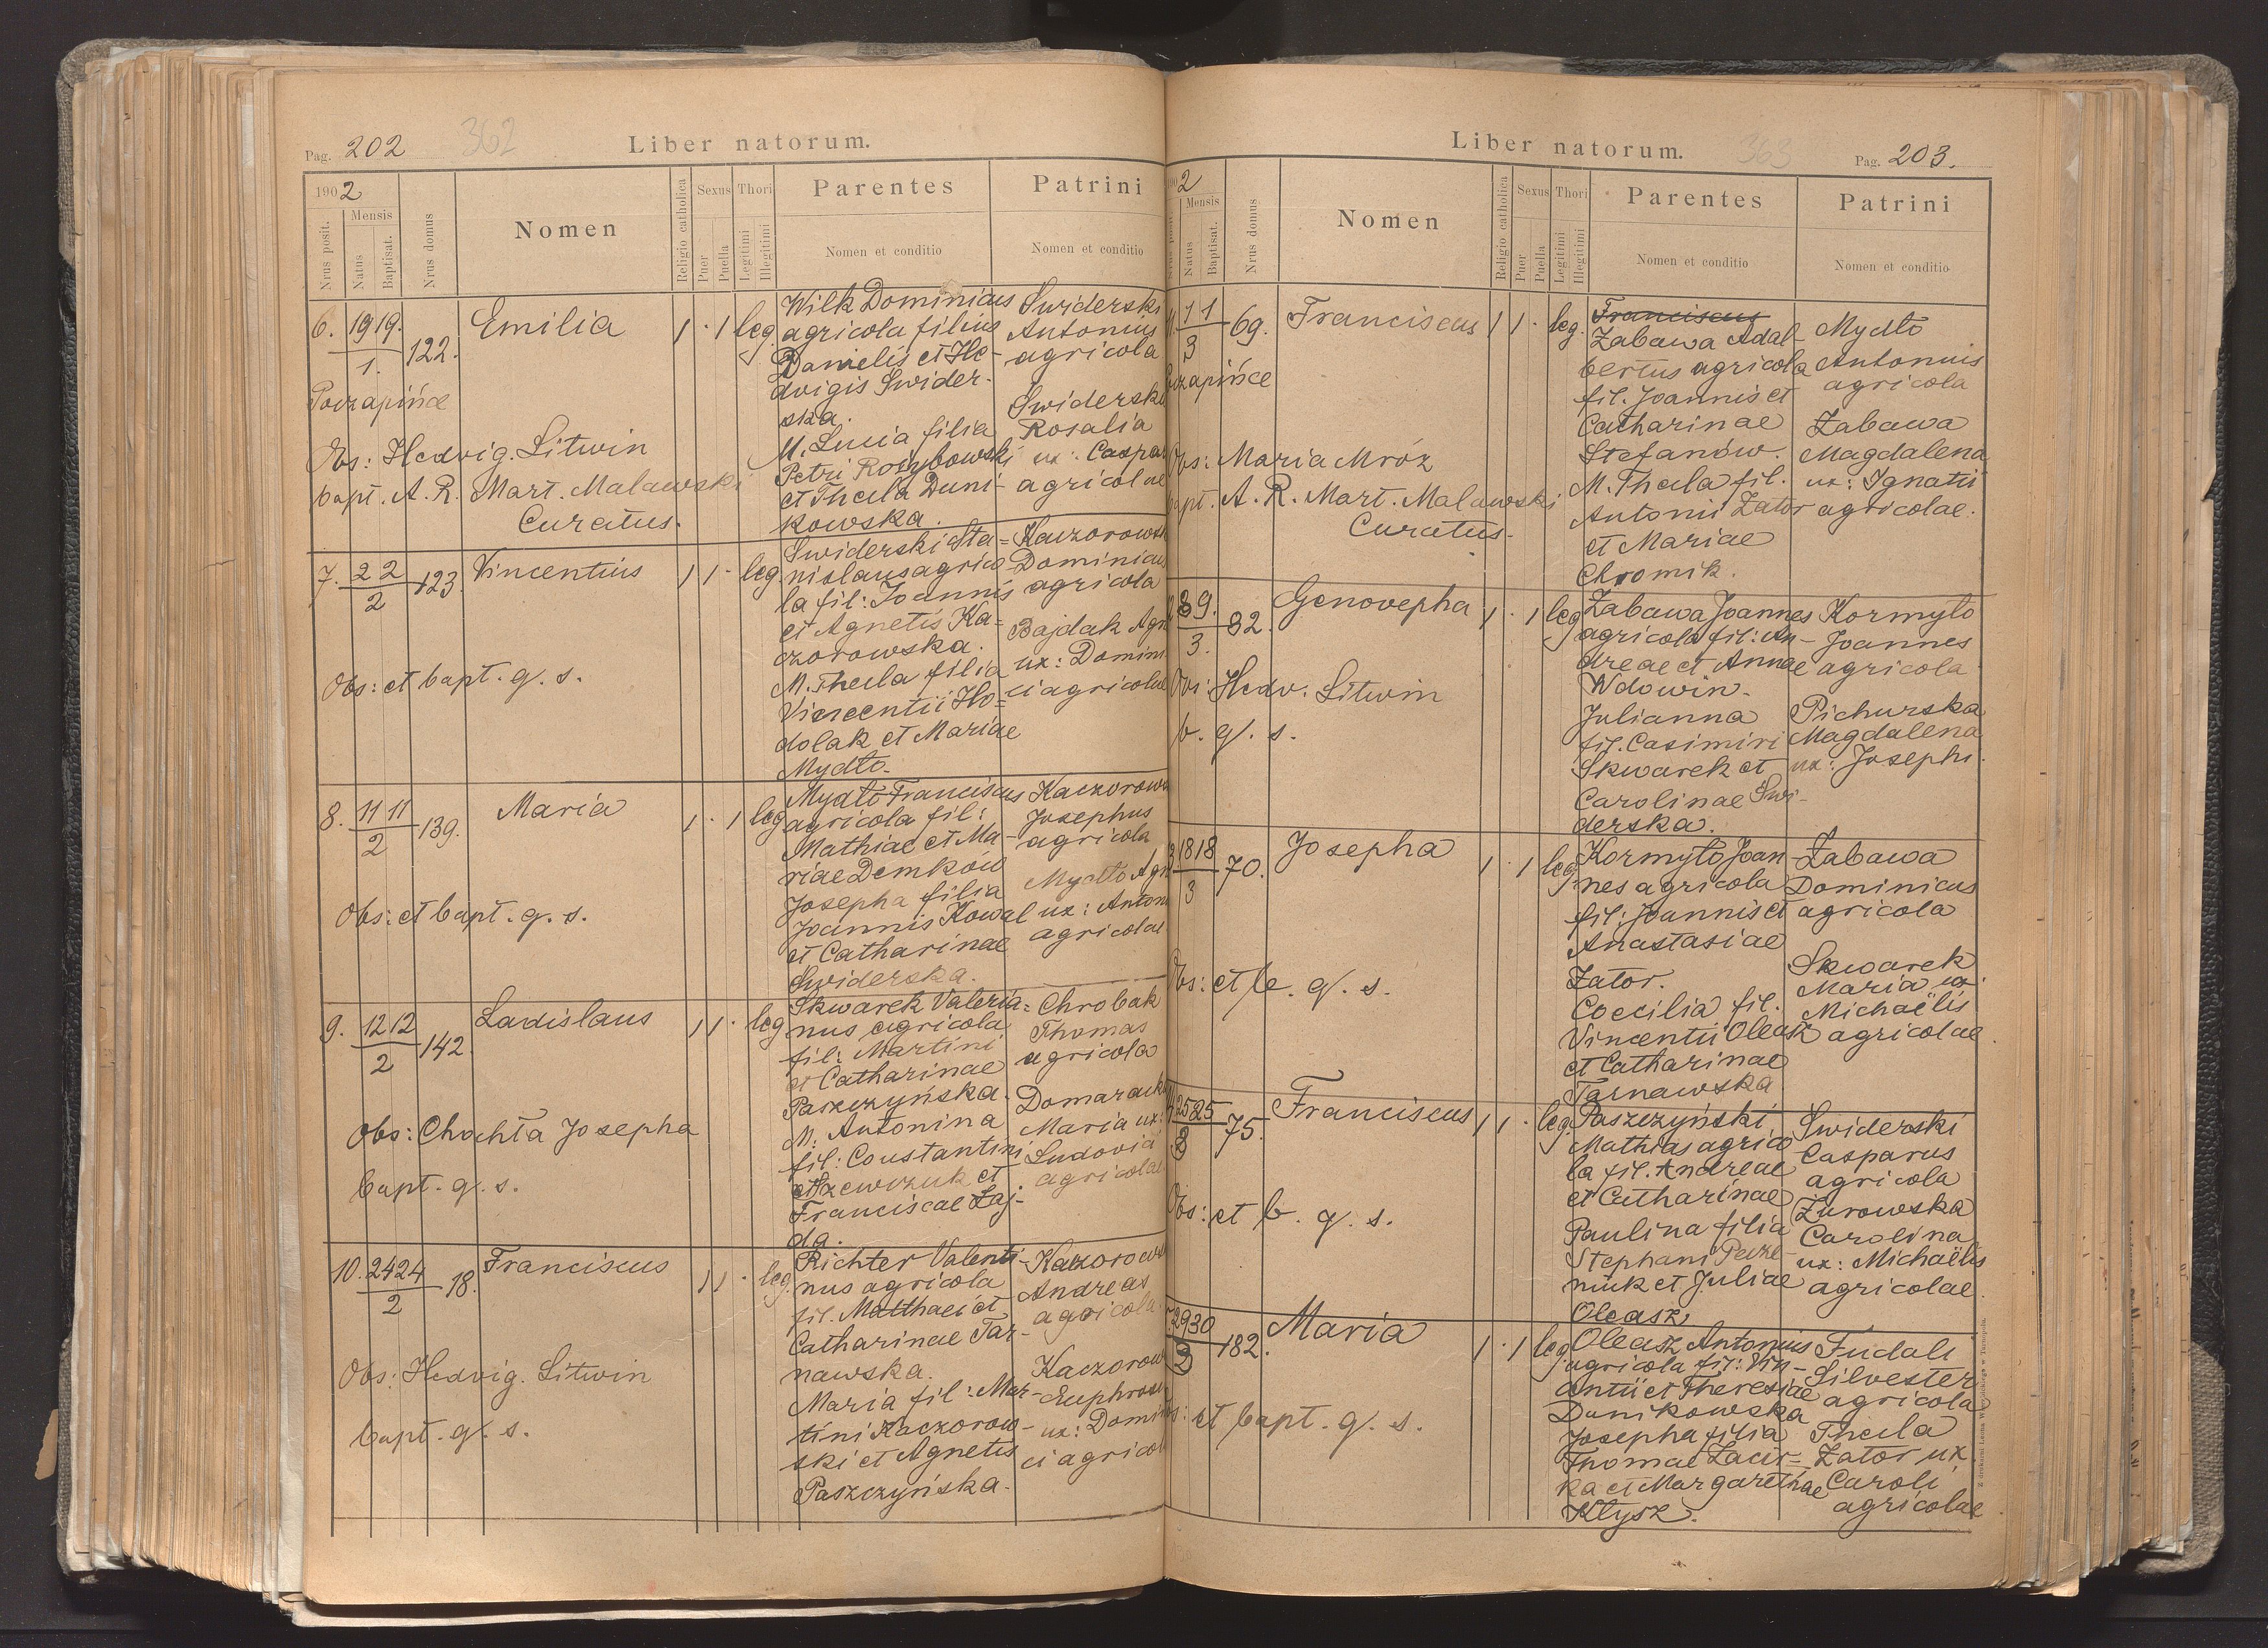 Pag. 202 362 Liber natorum.
1902
Nrus posit.
Mensis
Natus
Baptisat.
Nrus domus
Nomen
Religio catholica
Sexus
Puer
Puella
Thori
Legitimi
Illegitimi
Parentes
Nomen et conditio
Patrini
Nomen et conditio
6. 19 19. 122. Emilia 1 · 1 leg.
1.
Poczapińce
Obs: Hedvig. Litwin
bapt. A. R. Mart. Malawski
Curatus.
Wilk Dominicus
agricola filius
Danielis et He-
dvigis Swider-
ska.
M. Lucia filia
Petri Rozybowski
et Thecla Duni-
kowska.
Swiderski
Antonius
agricola
Swiderska
Rosalia
ux: Caspa
agricolae
7. 2 2 123. Vincentius 1 1 · leg.
2
Obs: et bapt. q. s.
Swiderski Sta=
nislaus agrico
la fil: Joannis
et Agnetis Ka=
czorowska.
M. Thecla filia
Vincentii Ho=
dolak et Mariae
Mydło.
Kaczorowsk
Dominicus
agricola
Bajdak Agn
ux: Domini
ci agricolae
8. 11 11 139. Maria 1 · 1 leg
2
Obs: et bapt. q. s.
Mydło Franciscus
agricola fil:
Mathiae et Ma-
riae Demków
Josepha filia
Joannis Kowal
et Catharinae
Swiderska.
Kaczorows
Josephus
agricola
Mydło Agn
ux: Anton
agricolae
9. 12 12 142. Ladislaus 1 1 · leg
2
Obs: Chochta Josepha
bapt. q. s.
Skwarek Valeria=
nus agricola
fil: Martini
et Catharinae
Paszczyńska.
M. Antonina
fil: Constantini
Szewczuk et
Franciscae Zaj-
da.
Chrobak
Thomas
agricola
Domarack
Maria ux:
Ludovici
agricolae
10. 24 24 18. Franciscus 1 1 · leg.
2
Obs: Hedvig. Litwin
bapt. q. s.
Richter Valenti-
nus agricola
fil. Matthaei et
Catharinae Tar-
nawska.
Maria fil: Mar-
tini Kaczorow-
ski et Agnetis
Paszczyńska.
Kaczorows
Andreas
agricola
Kaczorow
Euphrosi
ux: Domini
ci agricol
Liber natorum. 363 Pag. 203.
1902
Mensis
Natus
Baptisat.
Nrus domus
Nomen
Religio catholica
Sexus
Puer
Puella
Thori
Legitimi
Illegitimi
Parentes
Nomen et conditio
Patrini
Nomen et conditio
1 1 69. Franciscus 1 1 · leg.
3
Poczapińce
Obs: Maria Mróz
bapt. A. R. Mart. Malawski
Curatus.
Franciscus
Zabawa Adal-
bertus agricola
fil. Joannis et
Catharinae
Stefanów.
M. Thecla fil.
Antonii Zator
et Mariae
Chromik.
Mydło
Antonius
agricola
Zabawa
Magdalena
ux: Ignatii
agricolae.
8 9. 82. Genovepha 1 · 1 leg
3.
Obs: Hedv. Litwin
b. q. s.
Zabawa Joannes
agricola fil: An-
dreae et Annae
Wdowin.
Julianna
fil. Casimiri
Skwarek et
Carolinae Swi-
derska.
Kormyło
Joannes
agricola
Pichurska
Magdalena
ux: Josephi.
18 18 70. Josepha 1 · 1 leg
3
Obs: et b. q. s.
Kormyło Joan-
nes agricola
fil: Joannis et
Anastasiae
Zator.
Coecilia fil:
Vincentii Oleasz
et Catharinae
Tarnawska
Zabawa
Dominicus
agricola
Skwarek
Maria ux
Michaëlis
agricolae
25 25 75. Franciscus 1 1 · leg.
3
Obs: et b. q. s.
Paszczyński
Mathias agrico
la fil. Andreae
et Catharinae
Paulina filia
Stephani Pecze-
niuk et Juliae
Oleasz
Swiderski
Casparus
agricola
Żurowska
Carolina
ux: Michaëlis
agricolae.
29 30 182. Maria 1 · 1 leg
3
et bapt. q. s.
Oleasz Antonius
agricola fil: Vin-
centii et Theresiae
Dunikowska
Josepha filia
Thomae Zacir=
ka et Margarethae
Kłysz.
Fudali
Silvester
agricola
Thecla
Zator ux
Caroli
agricolae